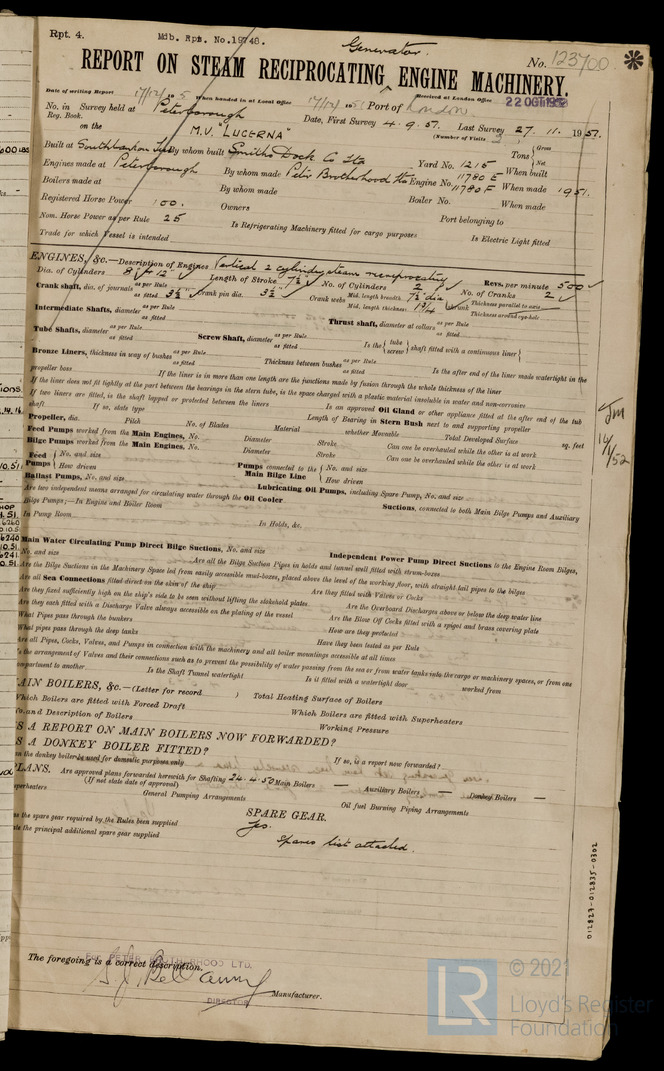 Rpt. 4. Mib. Rpt. No. 19748.
Generator.
No. 123700
REPORT ON STEAM RECIPROCATING ENGINE MACHINERY.
Date of writing Report 17/12/ 195 When handed in at Local Office 17/12/ 1951 Port of London Received at London Office 22 OCT 1952
No. in Reg. Book. Survey held at Peterborough Date, First Survey 4.9.51. Last Survey 27.11. 1951.
(Number of Visits )
on the M.V. "LUCERNA" Tons Gross Net
Built at South Bank on Tees By whom built Smiths Dock Co Ltd Yard No. 1215 When built
Engines made at Peterborough By whom made Peter Brotherhood Ltd Engine No. 11780 E 11780 F When made 1951.
Boilers made at By whom made Boiler No. When made
Registered Horse Power 100. Owners Port belonging to
Nom. Horse Power as per Rule 25 Is Refrigerating Machinery fitted for cargo purposes Is Electric Light fitted
Trade for which Vessel is intended
ENGINES, &c.—Description of Engines Vertical 2 cylinder steam reciprocating Revs. per minute 500
Dia. of Cylinders 8½" 12" Length of Stroke 7½ No. of Cylinders 2 No. of Cranks 2
Crank shaft, dia. of journals as per Rule as fitted 3½" Crank pin dia. 3½" Crank webs Mid. length breadth 7½ dia Mid. length thickness 1¾ shrunk Thickness parallel to axis Thickness around eye-hole
Intermediate Shafts, diameter as per Rule as fitted Thrust shaft, diameter at collars as per Rule as fitted
Tube Shafts, diameter as per Rule as fitted Screw Shaft, diameter as per Rule as fitted Is the { tube screw } shaft fitted with a continuous liner {
Bronze Liners, thickness in way of bushes as per Rule as fitted Thickness between bushes as per Rule as fitted Is the after end of the liner made watertight in the
propeller boss If the liner is in more than one length are the junctions made by fusion through the whole thickness of the liner
If the liner does not fit tightly at the part between the bearings in the stern tube, is the space charged with a plastic material insoluble in water and non-corrosive
If two liners are fitted, is the shaft lapped or protected between the liners Is an approved Oil Gland or other appliance fitted at the after end of the tub
shaft If so, state type Length of Bearing in Stern Bush next to and supporting propeller
Propeller, dia. Pitch No. of Blades Material whether Movable Total Developed Surface sq. feet
Feed Pumps worked from the Main Engines, No. Diameter Stroke Can one be overhauled while the other is at work
Bilge Pumps worked from the Main Engines, No. Diameter Stroke Can one be overhauled while the other is at work
Feed Pumps { No. and size How driven Pumps connected to the Main Bilge Line { No. and size How driven
Ballast Pumps, No. and size Lubricating Oil Pumps, including Spare Pump, No. and size
Are two independent means arranged for circulating water through the Oil Cooler Suctions, connected to both Main Bilge Pumps and Auxiliary
Bilge Pumps;—In Engine and Boiler Room
In Pump Room In Holds, &c.
Main Water Circulating Pump Direct Bilge Suctions, No. and size Independent Power Pump Direct Suctions to the Engine Room Bilges,
No. and size Are all the Bilge Suction Pipes in holds and tunnel well fitted with strum-boxes
Are the Bilge Suctions in the Machinery Space led from easily accessible mud-boxes, placed above the level of the working floor, with straight tail pipes to the bilges
Are all Sea Connections fitted direct on the skin of the ship Are they fitted with Valves or Cocks
Are they fixed sufficiently high on the ship's side to be seen without lifting the stokehold plates Are the Overboard Discharges above or below the deep water line
Are they each fitted with a Discharge Valve always accessible on the plating of the vessel Are the Blow Off Cocks fitted with a spigot and brass covering plate
What Pipes pass through the bunkers How are they protected
What pipes pass through the deep tanks Have they been tested as per Rule
Are all Pipes, Cocks, Valves, and Pumps in connection with the machinery and all boiler mountings accessible at all times
is the arrangement of Valves and their connections such as to prevent the possibility of water passing from the sea or from water tanks into the cargo or machinery spaces, or from one
compartment to another Is the Shaft Tunnel watertight Is it fitted with a watertight door worked from
MAIN BOILERS, &c.—(Letter for record ) Total Heating Surface of Boilers
Which Boilers are fitted with Forced Draft Which Boilers are fitted with Superheaters
No. and Description of Boilers Working Pressure
IS A REPORT ON MAIN BOILERS NOW FORWARDED?
IS A DONKEY BOILER FITTED? If so, is a report now forwarded?
Is the donkey boiler be used for domestic purposes only
PLANS. Are approved plans forwarded herewith for Shafting 24.4.50 Main Boilers — Auxiliary Boilers — Donkey Boilers —
(If not state date of approval)
Superheaters General Pumping Arrangements Oil fuel Burning Piping Arrangements
SPARE GEAR.
Has the spare gear required by the Rules been supplied Yes.
State the principal additional spare gear supplied Spares list attached.
Jm
16/1/52
012827-012835-0302
The foregoing is a correct description.
FOR PETER BROTHERHOODS LTD.
DIRECTOR
Manufacturer.
LR
© 2021
Lloyd's Register
Foundation